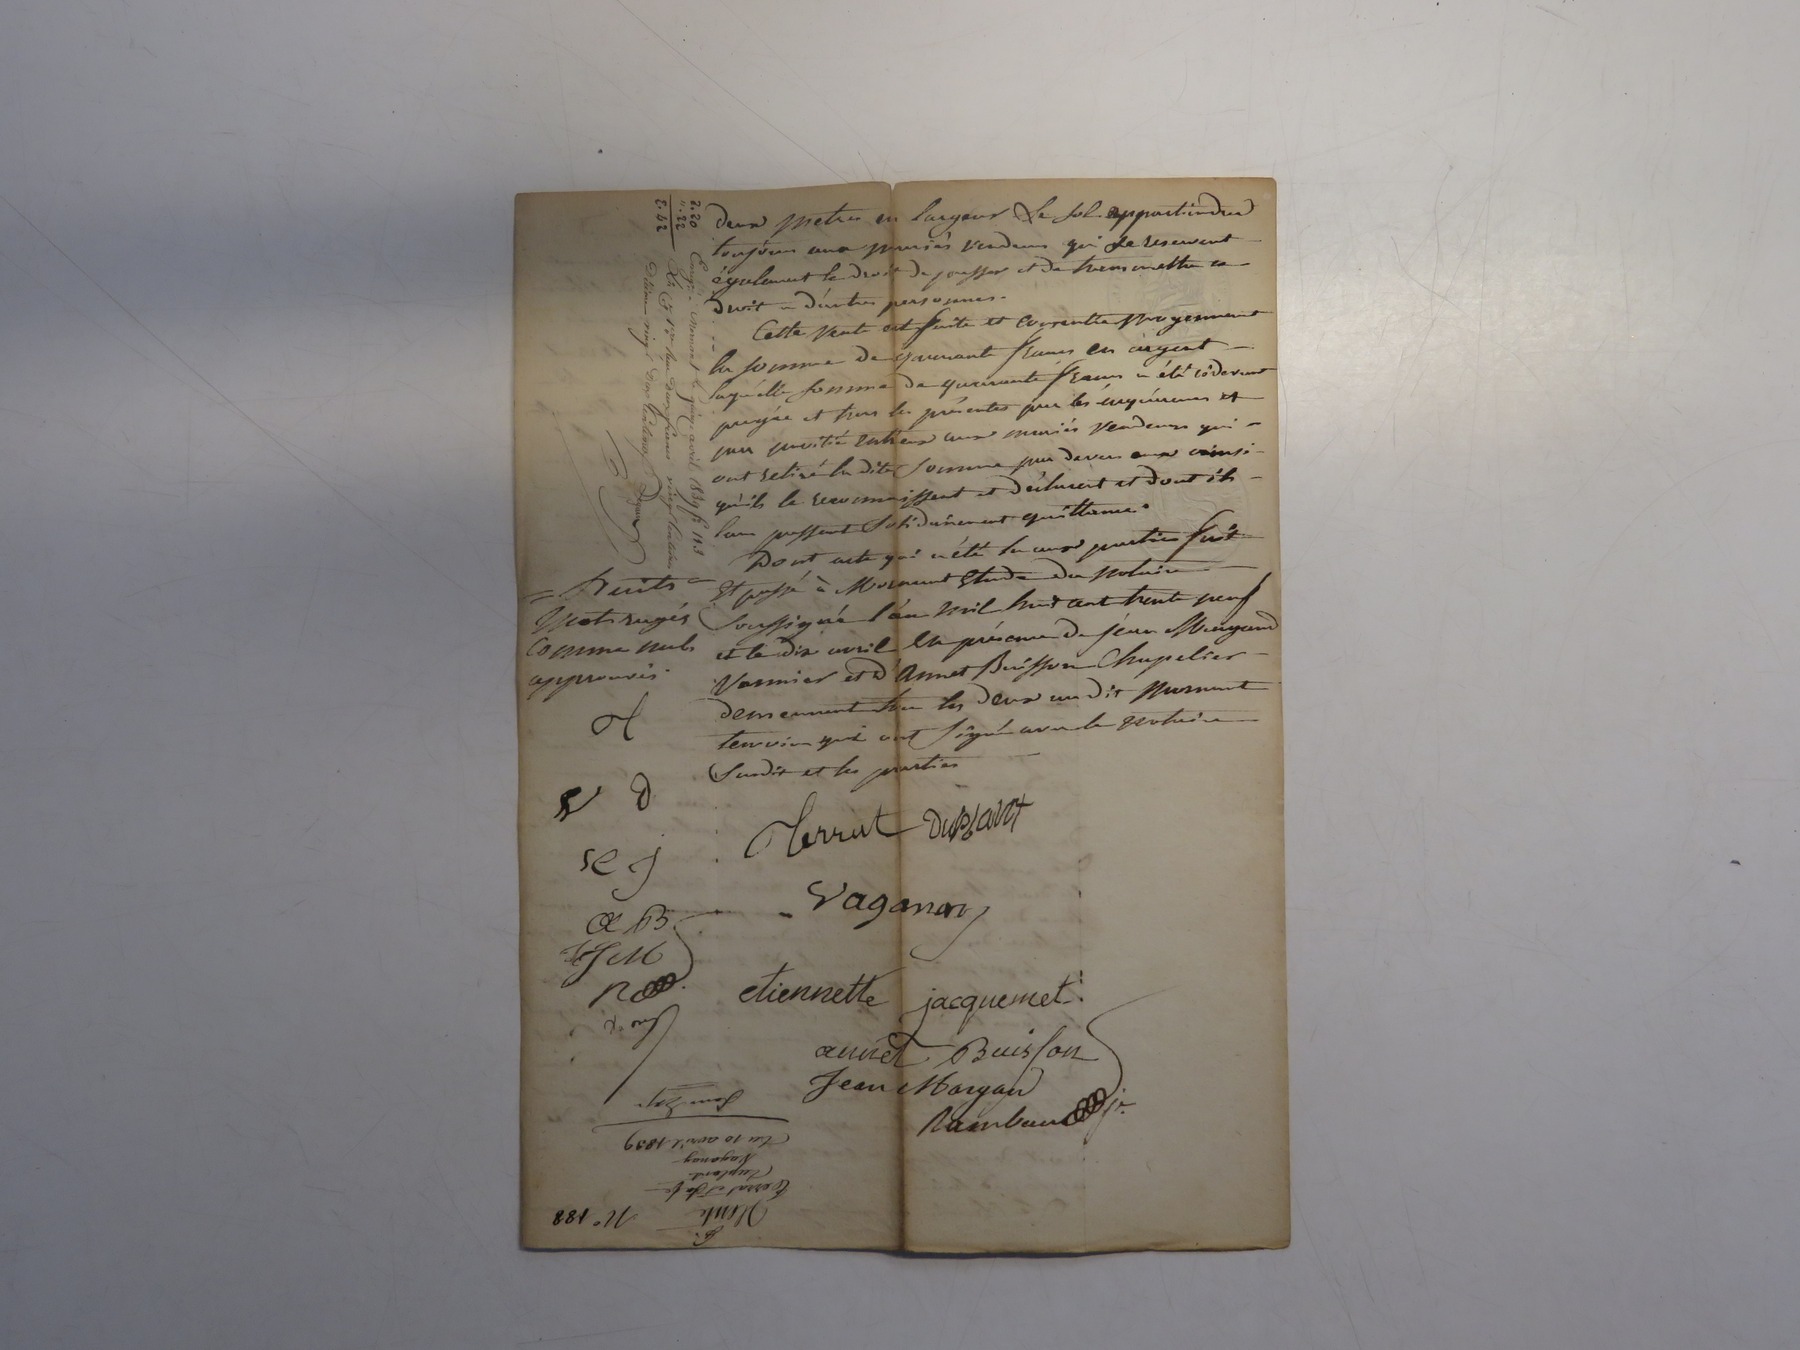 deux metres en largeur Le sol appartiendra
toujours aux mariés vendeurs qui se reservent
également le droit de passer et de transmettre ce
droit a d'autres personnes.
Cette vente est faite et consentie moyennant
la somme de quarante francs en argent
laquelle somme de quarante francs a été cidevant
payée et hors les présentes par les acquéreurs et
par moitié entreux aux mariés vendeurs qui
ont retiré la dite somme par devers eux ainsi
qu'ils le reconnaissent et déclarent et dont ils
leur passent solidairement quittance.
Dont acte qui a été lu aux parties fait
et passé à Mornant Etude du notaire
soussigné l'an mil huit cent trente neuf
et le dix avril En présence de jean Margand
Vannier et d'Annet Buisson Chapelier
demeurant tous les deux au dit Mornant
temoins qui ont signé avec le notaire
susdit et les parties
huits
mots rayés
comme nuls
approuvés
Terrat Duplant
Vaganay
etiennette jacquemet
annet Buisson
Jean Margan
Rambaud jr.
2.20
".22
2.42
Enrg. à Mornant le quinze avril 1839 f° 113
deux francs vingt centimes
Dixième vingt deux centimes
V D
E J
A B
J M
N° 188
Vente
Duplant
Vaganay
Du 10 avril 1839